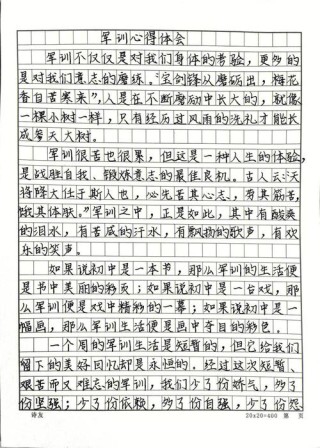 军训心得体会
军训不仅仅是对我们身体的考验，更多的
是对我们意志的磨练。“宝剑锋从磨砺出，梅花
香自苦寒来”，人是在不断磨励中长大的，就像
一棵小树一样，只有经历过风雨的洗礼才能长
成参天大树。
军训很苦也很累，但这是一种人生的体验，
是战胜自我、锻炼意志的最佳良机。古人云：“天
将降大任于斯人也，必先苦其心志，劳其筋苦，
饿其体肤。”军训之中，正是如此，其中有酸爽
的泪水，有苦咸的汗水，有飘扬的歌声，有欢
乐的笑声。
如果说初中是一本节，那么军训的生活便
是书中美丽的彩页；如果说初中是一台戏，那
么军训便是戏中精彩的一幕；如果说初中是一
幅画，那么军训生活便是画中夺目的彩色。
一个周的军训生活是短暂的，但它给我们
留下的美好回忆却是永恒的。经过这次短暂、
艰苦而又难忘的军训，我们少了份娇气，多了
份坚强；少了份依赖，多了份自强，少了份怨
诗友
20x20=400
第 页